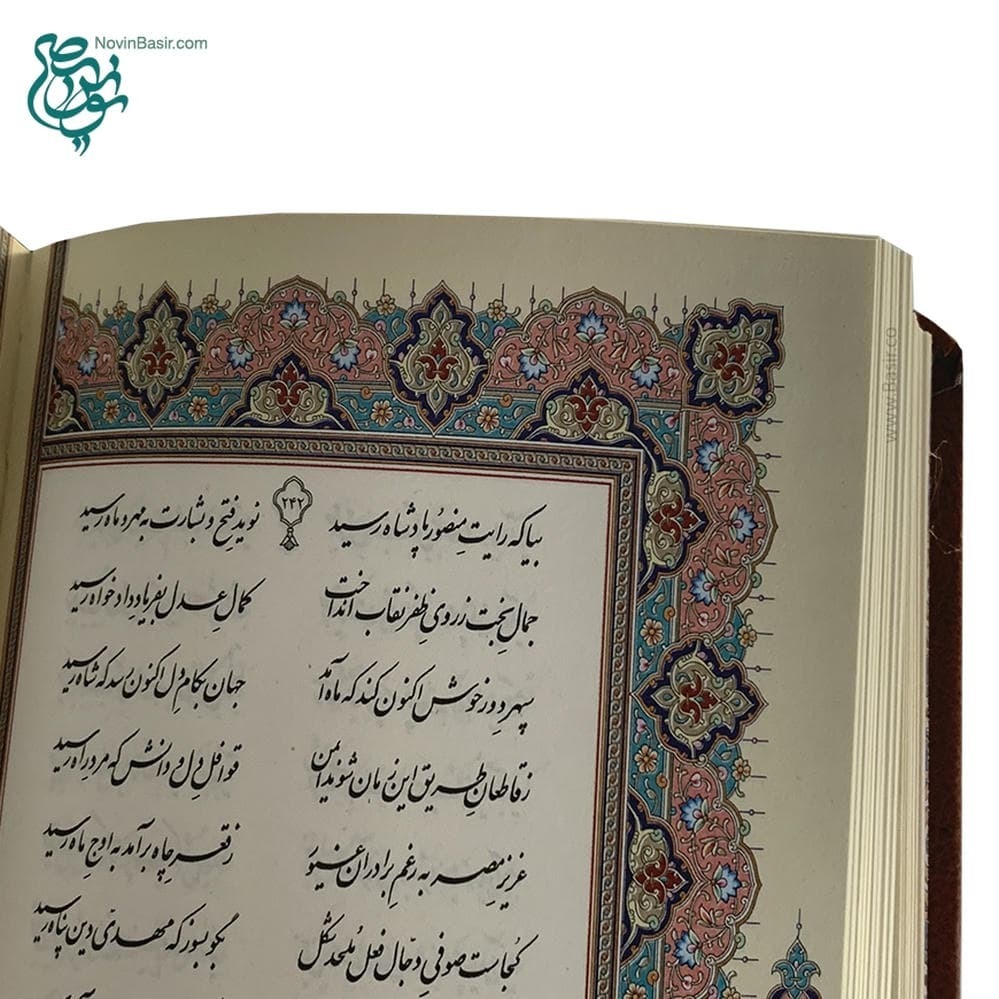 NovinBasir.com
نوین بصیر
۲۴۲
بیا که رایتِ منصورِ پادشاه رسید نویدِ فتح و بشارت به مهر و ماه رسید
جمالِ بخت ز روی ظفر نقاب انداخت کمالِ عدل بفریادِ دادخواه رسید
سپهر دورِ خوش اکنون کند که ماه آمد جهان بکامِ دل اکنون رسد که شاه رسید
ز قاطعانِ طریق این زمان شوند ایمن قوافلِ دل و دانش که مردِ راه رسید
عزیزِ مصر به رغمِ برادرانِ غیور ز قعرِ چاه برآمد به اوجِ ماه رسید
کجاست صوفیِ دجّال فعلِ مُلحد شکل بگو بسوز که مهدیِ دین پناه رسید
www.Basir.co